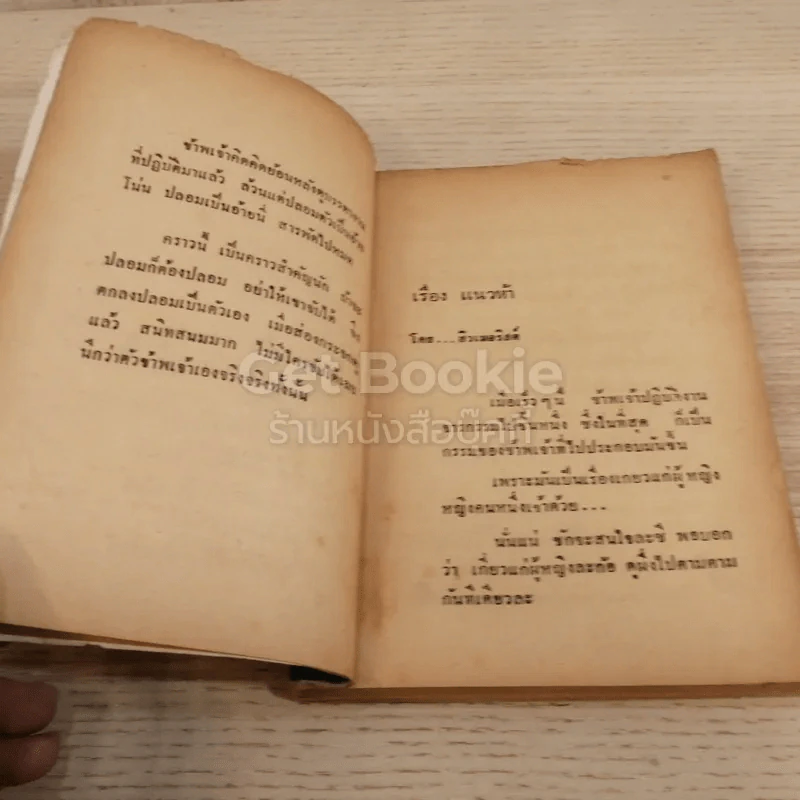 ข้าพเจ้าคิดคิดย้อนหลังดูบรรดางาน
ที่ปฏิบัติมาแล้ว ล้วนแต่ปลอมตัวเป็น
โน่น ปลอมเป็นอ้ายนี่ สารพัดไปหมด
คราวนี้ เป็นคราวสำคัญนัก
ปลอมก็ต้องปลอม อย่าให้เขาจับได้ จึง
ตกลงปลอมเป็นตัวเอง เมื่อส่องกระจกดู
แล้ว สนิทสนมมาก ไม่มีใครจับได้เลย
นึกว่าตัวข้าพเจ้าเองจริงจริงทั้งนั้น
เรื่อง แนวห้า
โดย...ฮิวเมอริสต์
เมื่อเร็วๆนี้ ข้าพเจ้าปฏิบัติงาน
จารกรรมไปชิ้นหนึ่ง ซึ่งในที่สุด ก็เป็น
กรรมของข้าพเจ้าที่ไปประกอบมันขึ้น
เพราะมันเป็นเรื่องเกี่ยวแก่ผู้หญิง
หญิงคนหนึ่งเข้าด้วย...
นั่นแน่ ชักจะสนใจละซี พอบอก
ว่า เกี่ยวแก่ผู้หญิงละก้อ หูผึ่งไปตามตาม
กันทีเดียวละ
Get Bookie
ร้านหนังสือบุ๊คกี้